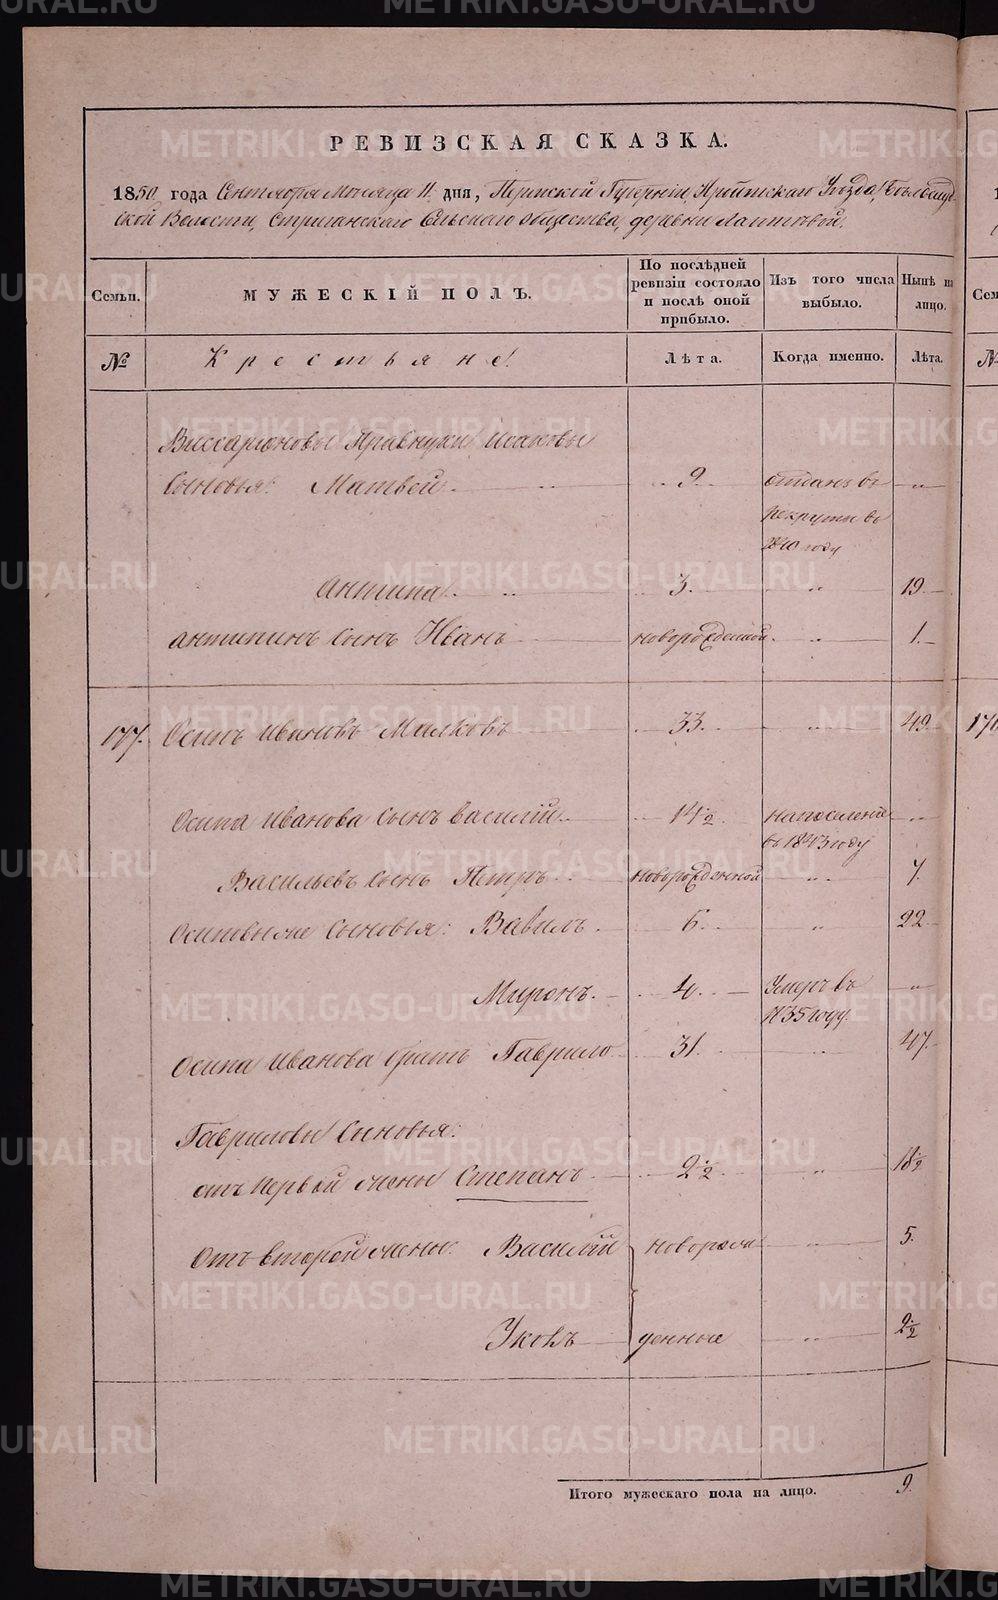 РЕВИЗСКАЯ СКАЗКА.
1850 года Сентября Месяца 11 дня, Пермской Губернии, Ирбитскаго Уезда,
ской Волости, Стриганскаго Сельскаго общества, деревни Лаптевой.
Семьи. МУЖЕСКІЙ ПОЛЪ. По послѣдней ревизіи состояло и послѣ оной прибыло. Изъ того числа выбыло. Нынѣ на лицо.
№ Крестьяне. Лѣта. Когда именно. Лѣта.
Виссарионовы Правнуки Исаковы
Сыновья: Матвей 9. отданъ въ рекруты въ 1840 году „
Антипа 3. „ 19.
Антипинъ Сынъ Иванъ новорожденной „ 1.
177. Осипъ Ивановъ Милковъ 33. „ 49.
Осипа Иванова Сынъ Василій 14½. на поселение въ 1843 году „
Васильевъ Сынъ Петръ новорожденной „ 7.
Осиповы же Сыновья: Вавилъ 6. „ 22
Миронъ. 4. Умеръ въ 1835 году „
Осипа Иванова братъ Гаврило 31. „ 47.
Гавриловы Сыновья:
отъ первой жены Степанъ 2½. „ 18½
Отъ второй жены: Василій новорож „ 5.
Яковъ денные „ 2½
Итого мужескаго пола на лицо. 9.
METRIKI.GASO-URAL.RU